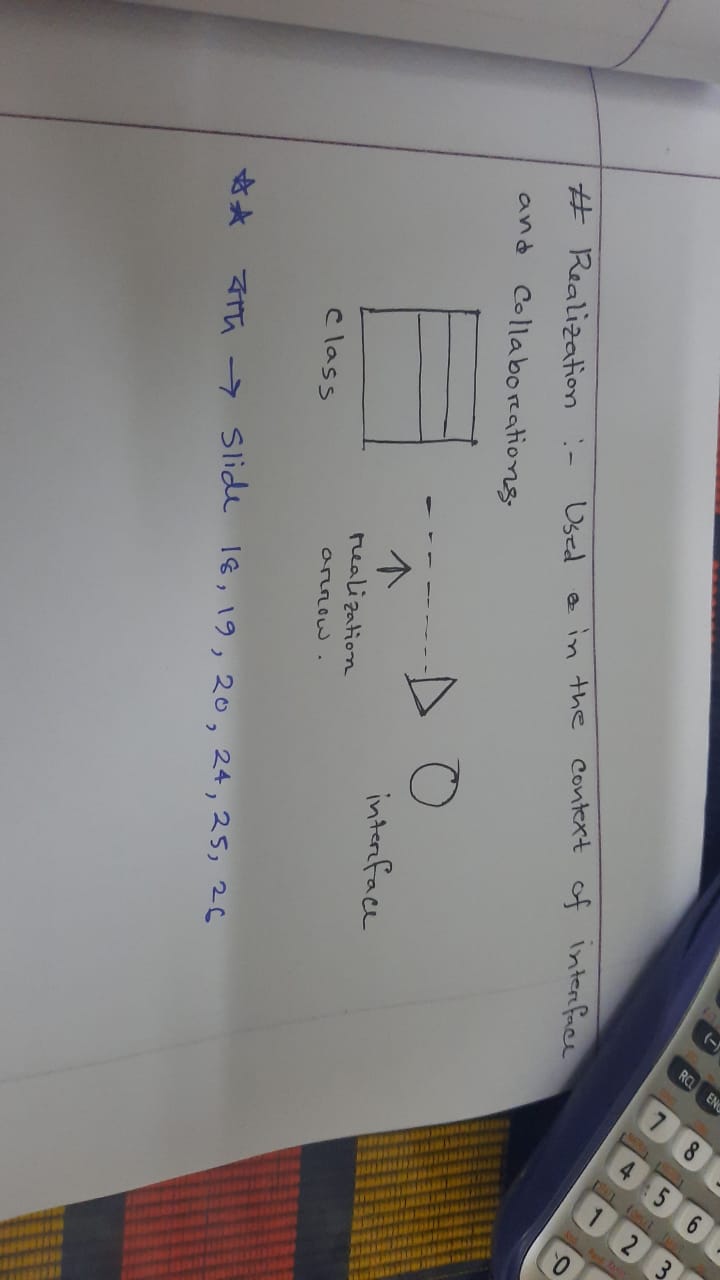 # Realization :- Used in the context of interface
and Collaborations.
class
realization
arrow.
interface
** বাদ → Slide 18, 19, 20, 24, 25, 26
RCL
ENG
(-)
7 8
4 5 6
1 2 3
0